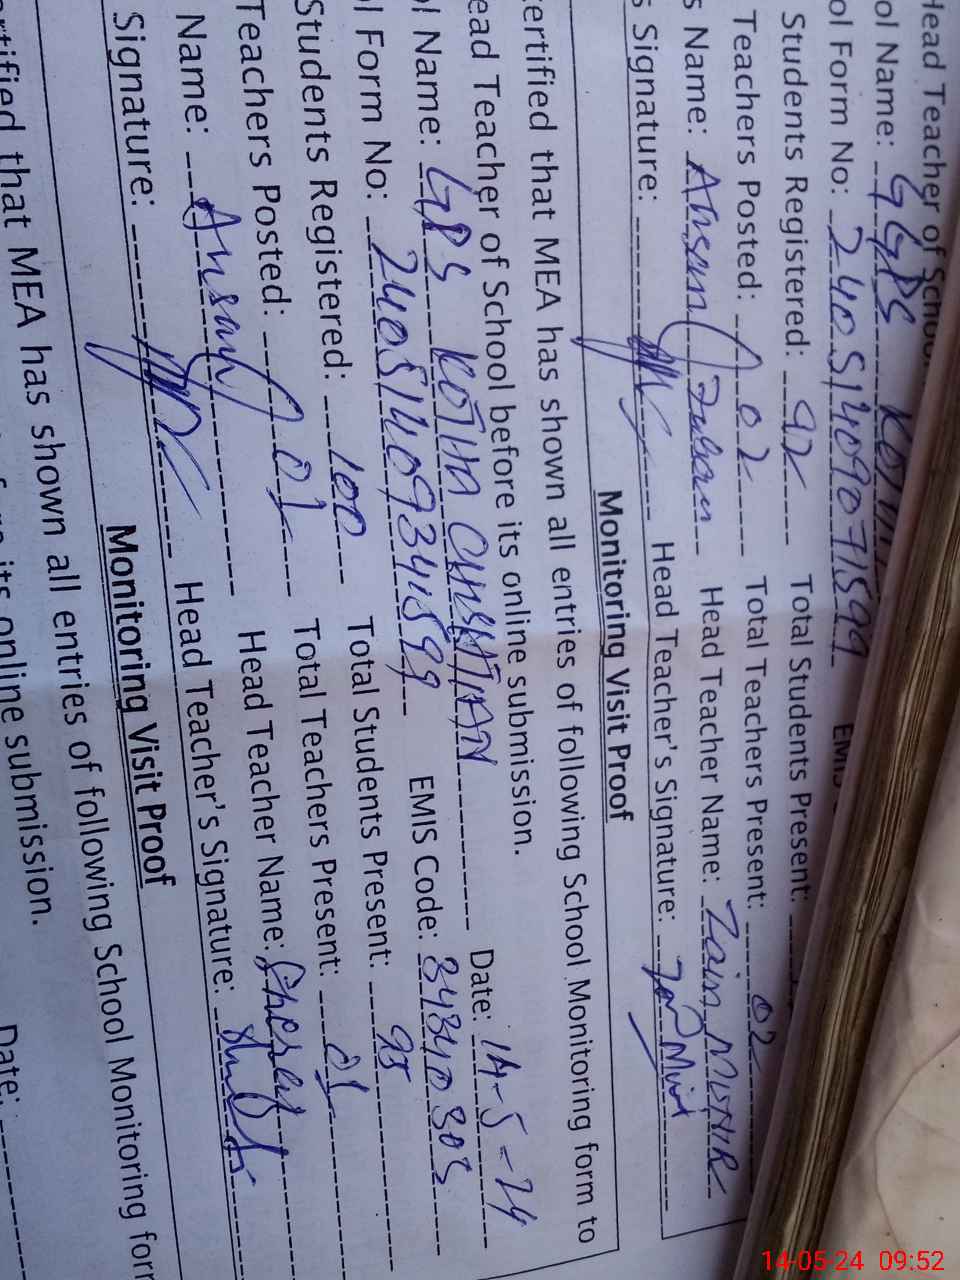 Head Teacher of School
ol Name: GGPS
ol Form No: 24051409071599 EMIS
Students Registered: 92 Total Students Present:
Teachers Posted: 02 Total Teachers Present: 02
s Name: Head Teacher Name: Zain MUNIR
s Signature: Head Teacher's Signature:
Monitoring Visit Proof
ertified that MEA has shown all entries of following School Monitoring form to
ead Teacher of School before its online submission. Date: 14-5-24
ol Name: GPS KOTHA CHRISTIAN EMIS Code: 34340303
ol Form No: 24051409341599 Total Students Present: 95
Students Registered: 100 Total Teachers Present: 01
Teachers Posted: 01 Head Teacher Name:
Name: Head Teacher's Signature:
Signature:
Monitoring Visit Proof
ertified that MEA has shown all entries of following School Monitoring form
its online submission. Date:
14-05-24 09:52